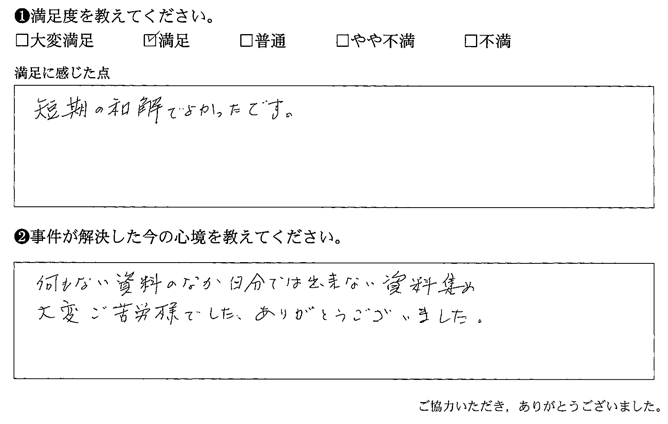 ❶満足度を教えてください。
□大変満足 ☑満足 □普通 □やや不満 □不満
満足に感じた点
短期の和解でよかったです。
❷事件が解決した今の心境を教えてください。
何もない資料のなか自分では出来ない資料集め
大変ご苦労様でした、ありがとうございました。
ご協力いただき，ありがとうございました。